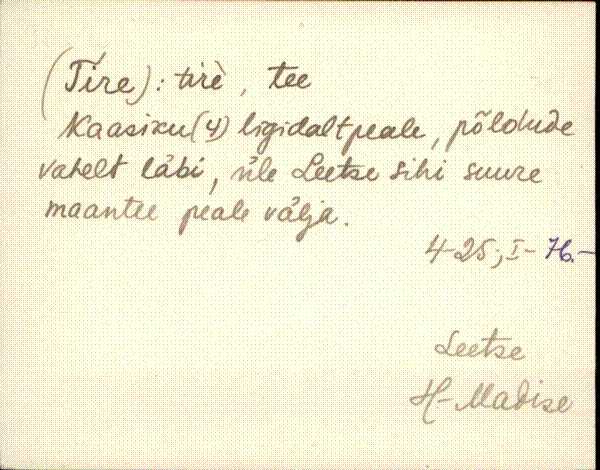 (Tire): tirè, tee
Kaasiku (4) ligidalt peale, põldude
vahelt läbi, üle Leetse sihi suure
maantee peale välja.
4-25; I- H.-
Leetse
H-Madise